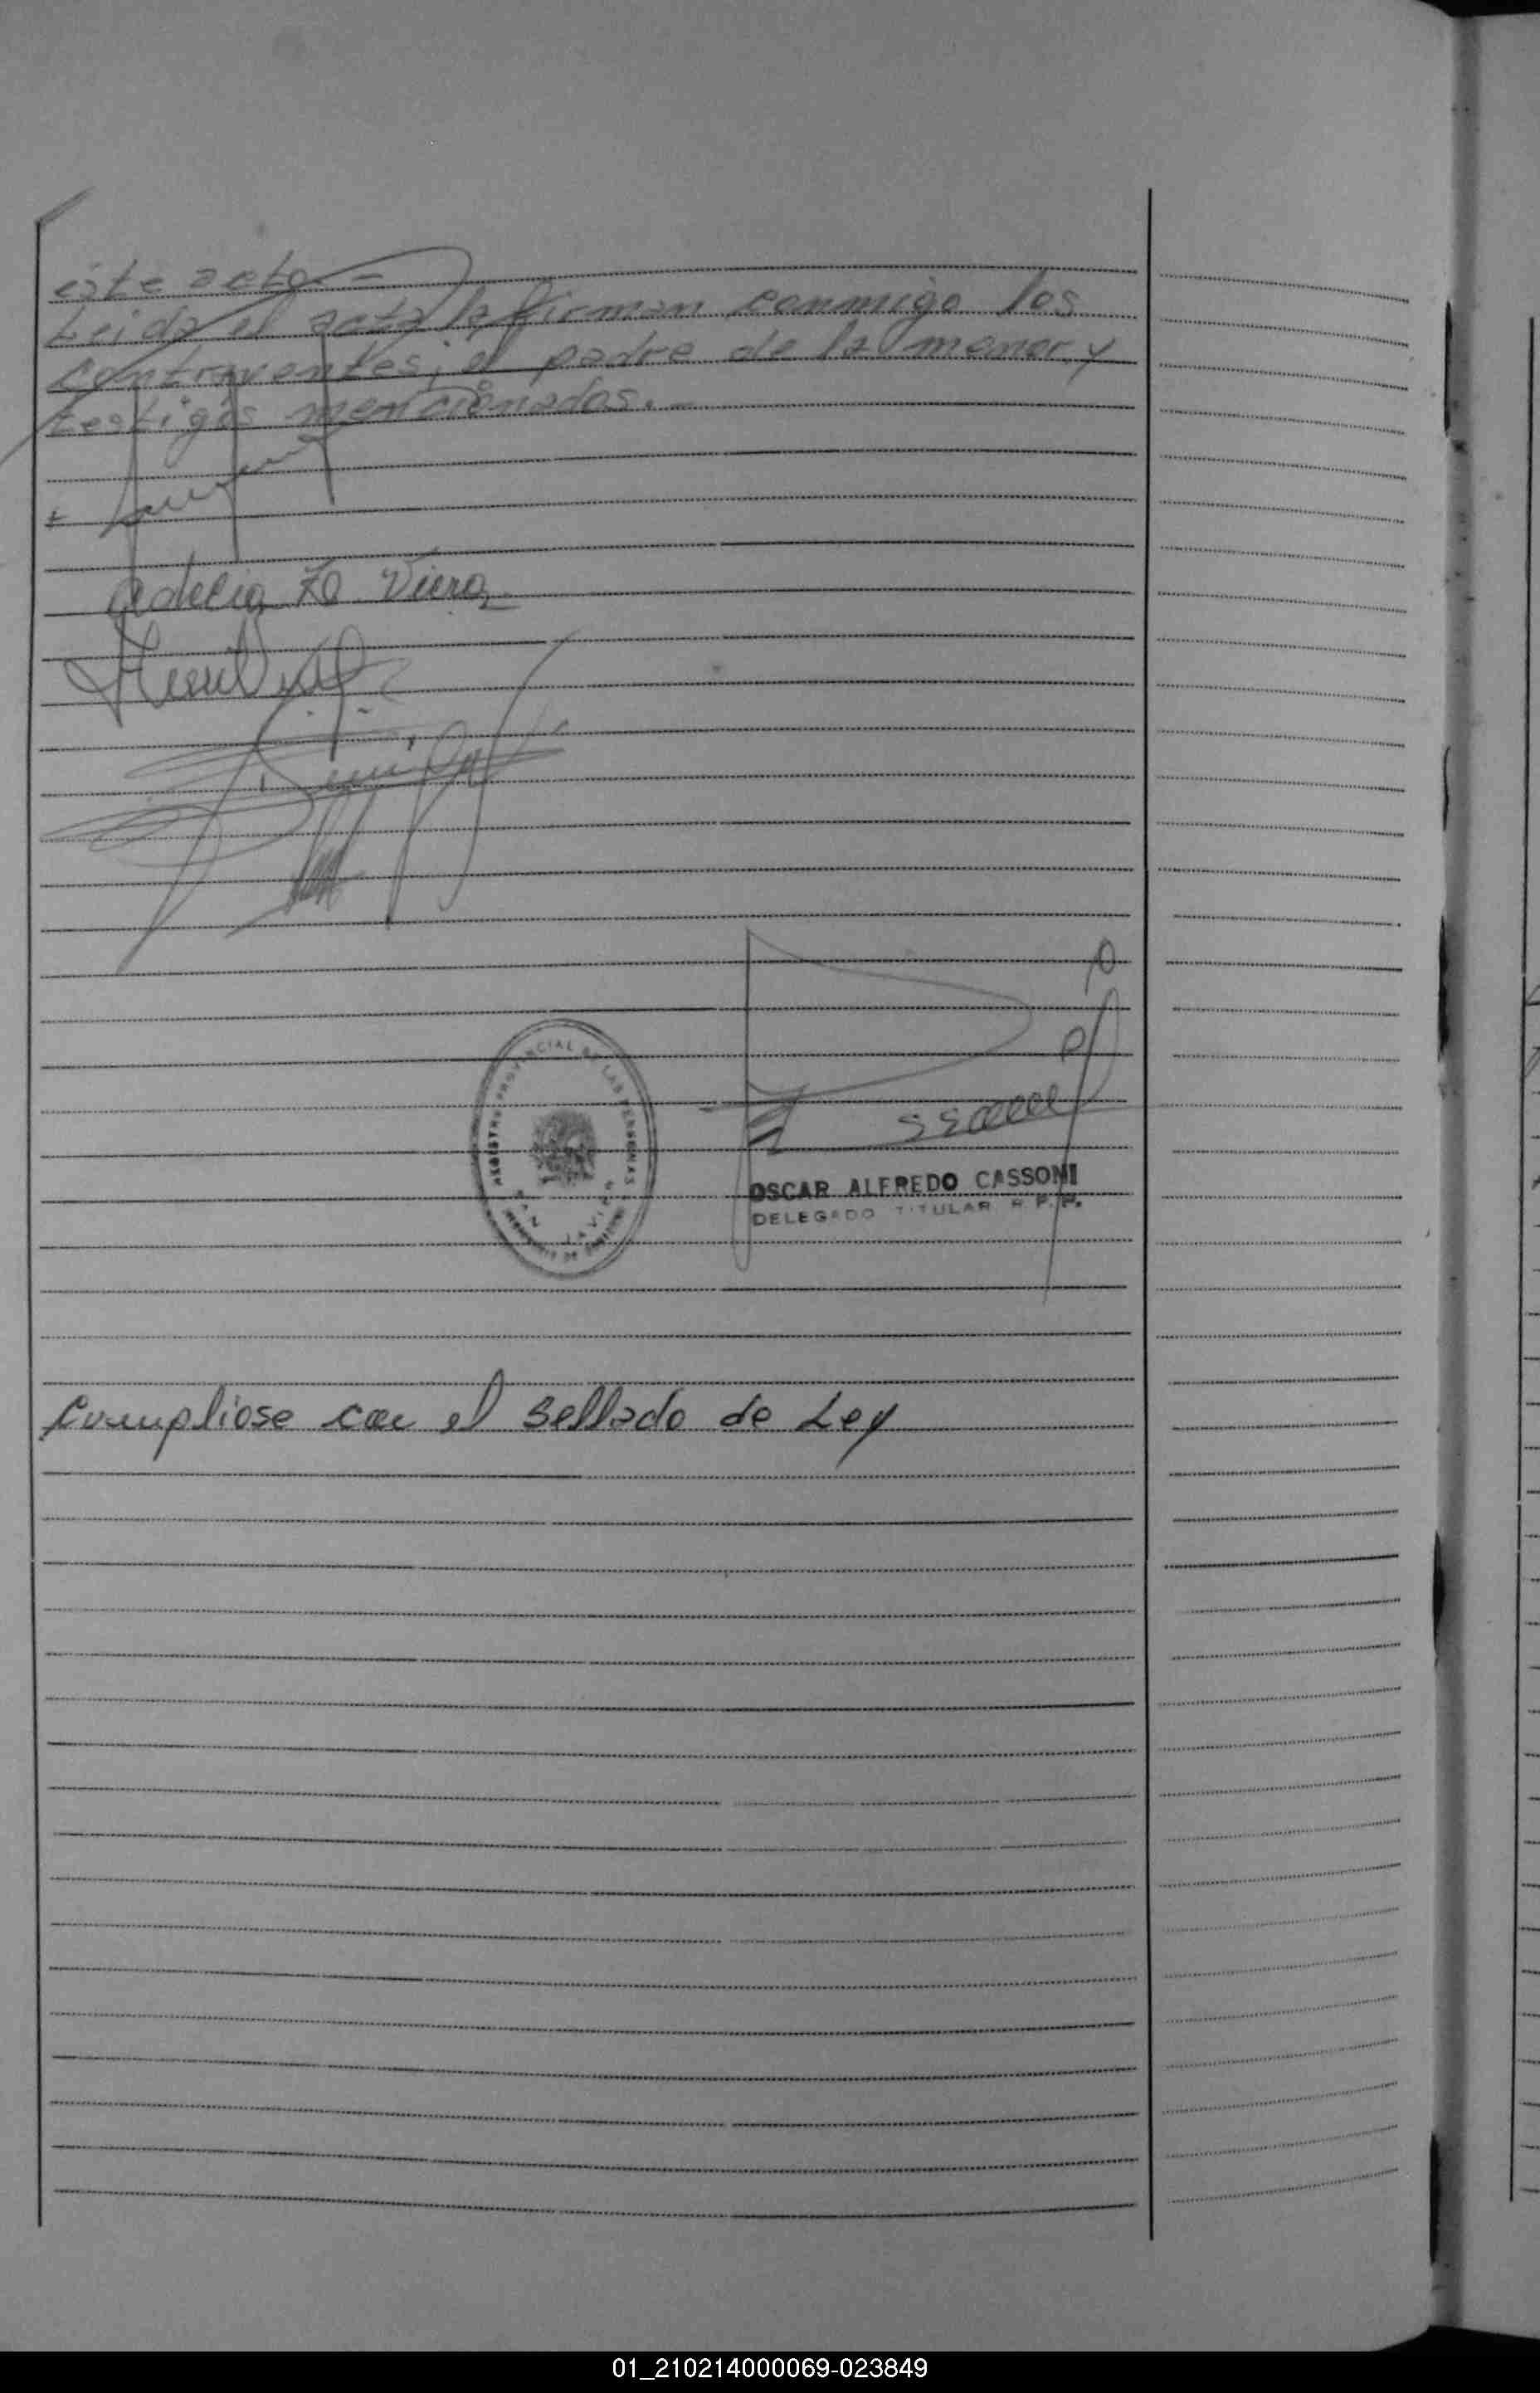 este acto.-
Leida el acta la firman conmigo los
contrayentes, el padre de la menor y
testigos mencionados.-
Adelia Viera
REGISTRO PROVINCIAL DE LAS PERSONAS
OSCAR ALFREDO CASSONI
DELEGADO TITULAR R.P.P.
Cumpliose con el sellado de Ley
01_210214000069-023849